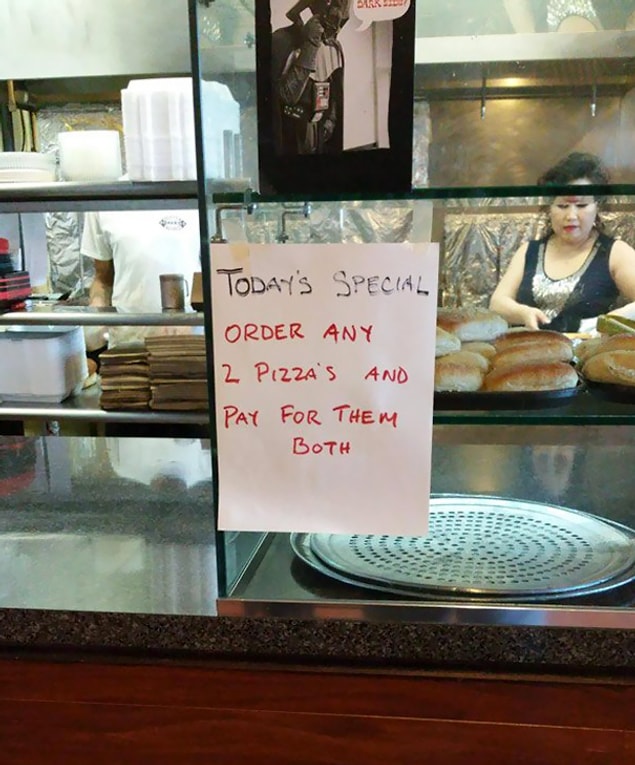 DARK SIDE?
TODAY'S SPECIAL
ORDER ANY
2 PIZZA'S AND
PAY FOR THEM
BOTH